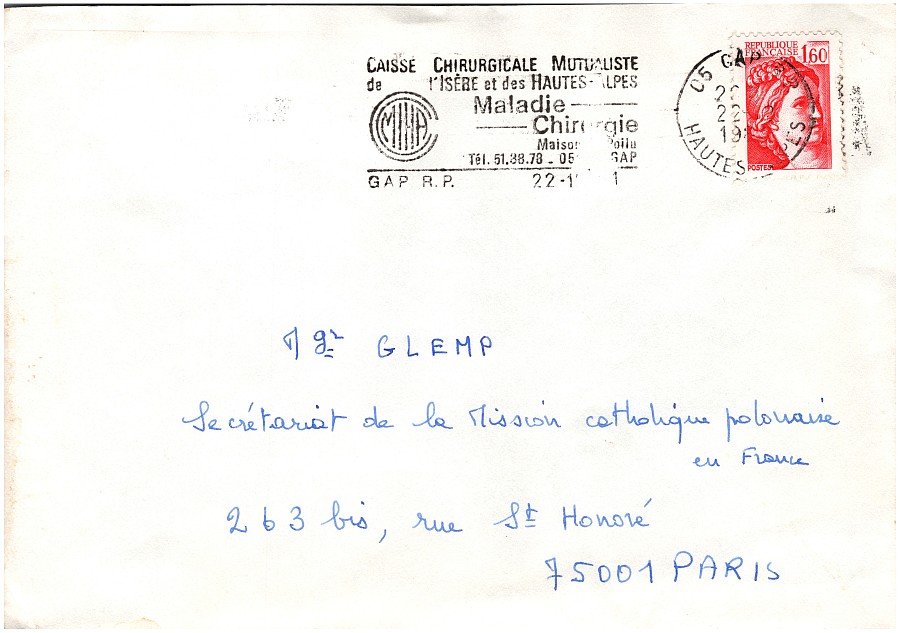 CAISSE CHIRURGICALE MUTUALISTE
de l'ISÈRE et des HAUTES-ALPES
Maladie
Chirurgie
Maison
Tél. 51.38.78 - 05 GAP
GAP R.P. 22-1
RÉPUBLIQUE
FRANÇAISE 1,60
POSTES
05 GAP
22
HAUTES ALPES
Mgr GLEMP
Secrétariat de la Mission catholique polonaise
en France
263 bis, rue St Honoré
75001 PARIS